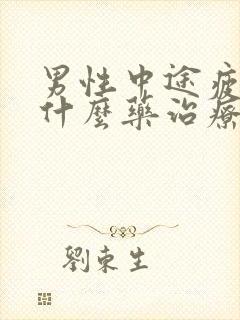 男性中途疲
什麼藥治療
劉東生